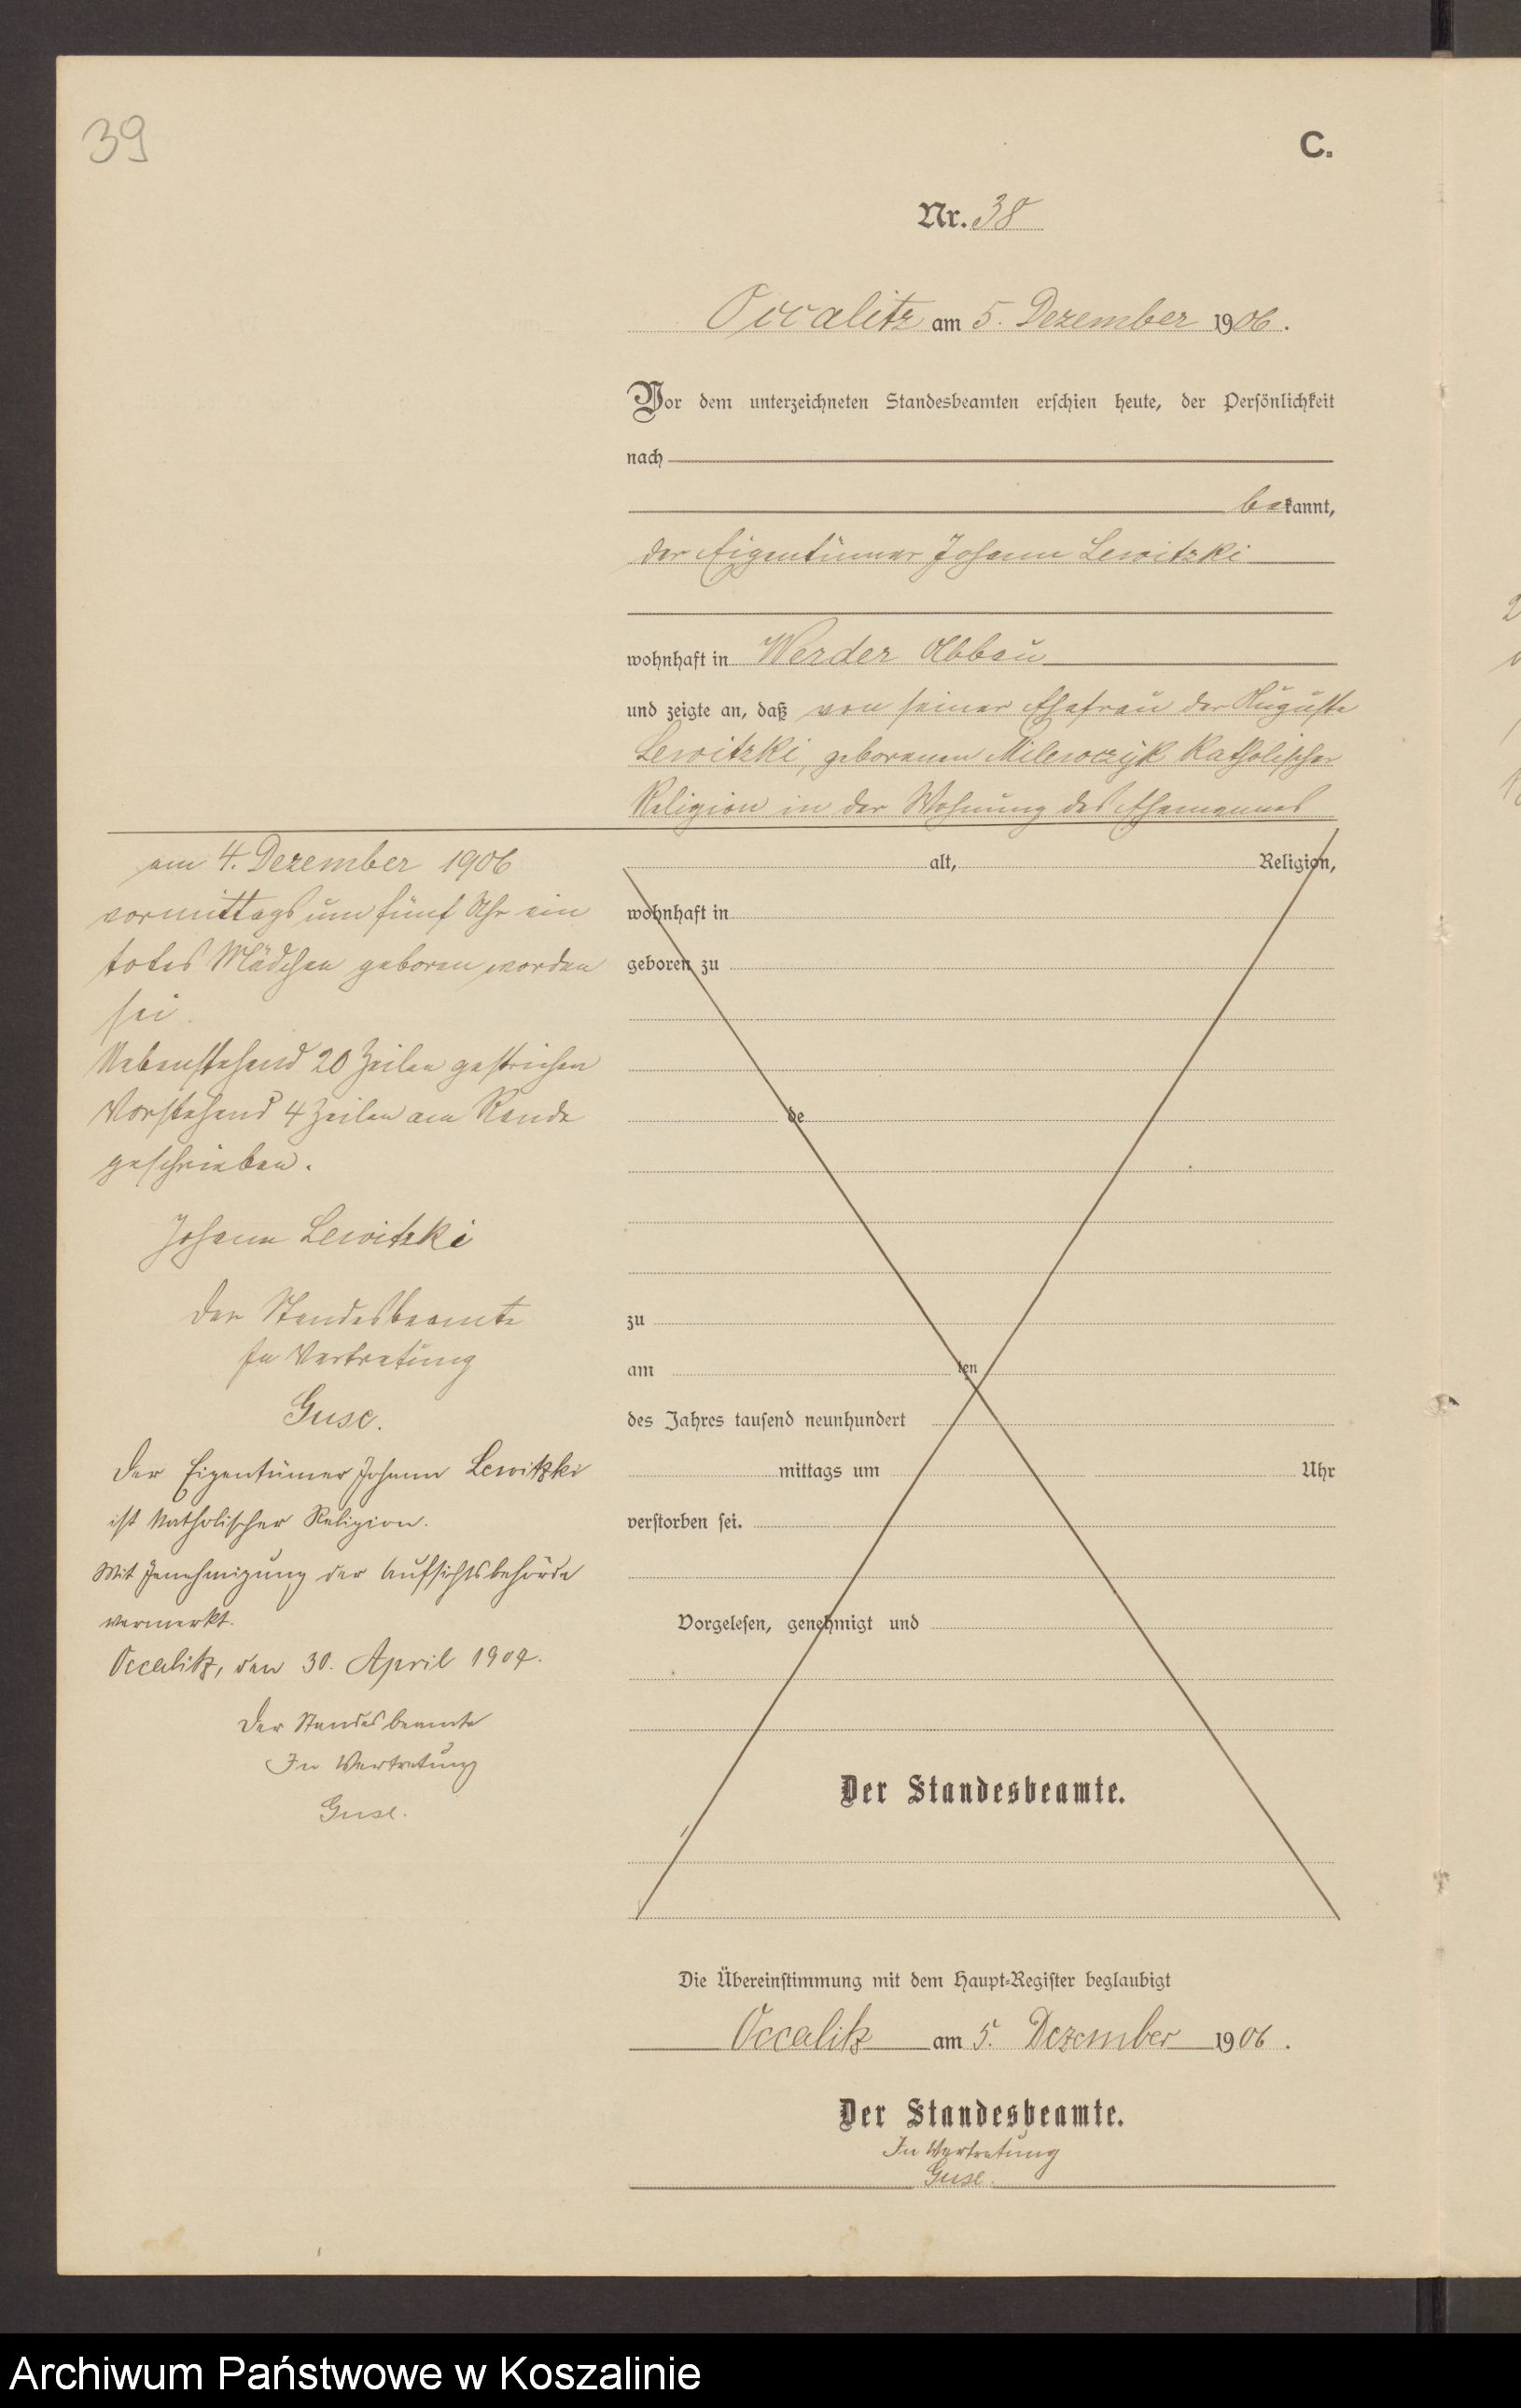 39
C.
Nr. 38
Occalitz am 5. Dezember 1906.
Vor dem unterzeichneten Standesbeamten erschien heute, der Persönlichkeit
nach
bekannt,
der Eigentümer Johann Lewitzki
wohnhaft in Werder Abbau
und zeigte an, daß von seiner Ehefrau der Auguste
Lewitzki, geborenen Milewczyk katholischer
Religion in der Wohnung des Ehemannes
am 4. Dezember 1906
vormittags um fünf Uhr ein
totes Mädchen geboren worden
sei.
Nebenstehend 20 Zeilen gestrichen
Vorstehend 4 Zeilen am Rande
geschrieben.
Johann Lewitzki
Der Standesbeamte
In Vertretung
Guse.
Der Eigentümer Johann Lewitzki
ist katholischer Religion.
Mit Genehmigung der Aufsichtsbehörde
vermerkt.
Occalitz, den 30. April 1907.
Der Standesbeamte
In Vertretung
Guse.
alt, Religion,
wohnhaft in
geboren zu
de
zu
am ten
des Jahres tausend neunhundert
mittags um Uhr
verstorben sei.
Vorgelesen, genehmigt und
Der Standesbeamte.
Die Übereinstimmung mit dem Haupt-Register beglaubigt
Occalitz am 5. Dezember 1906.
Der Standesbeamte.
In Vertretung
Guse.
Archiwum Państwowe w Koszalinie